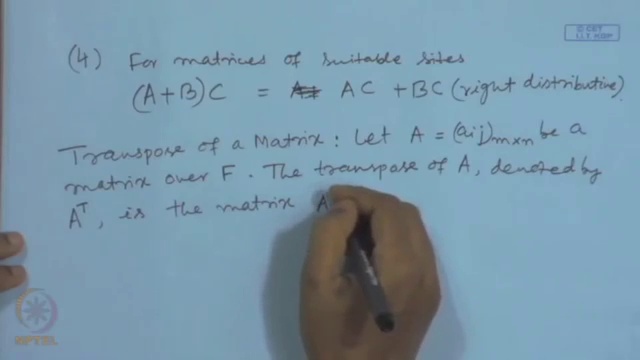 © CET
I.I.T. KGP
(4) For matrices of suitable sites
(A+B)C = AC + BC (right distributive)
Transpose of a Matrix : Let A = (aij)m×n be a
matrix over F. The transpose of A, denoted by
Aᵀ, is the matrix A
NPTEL